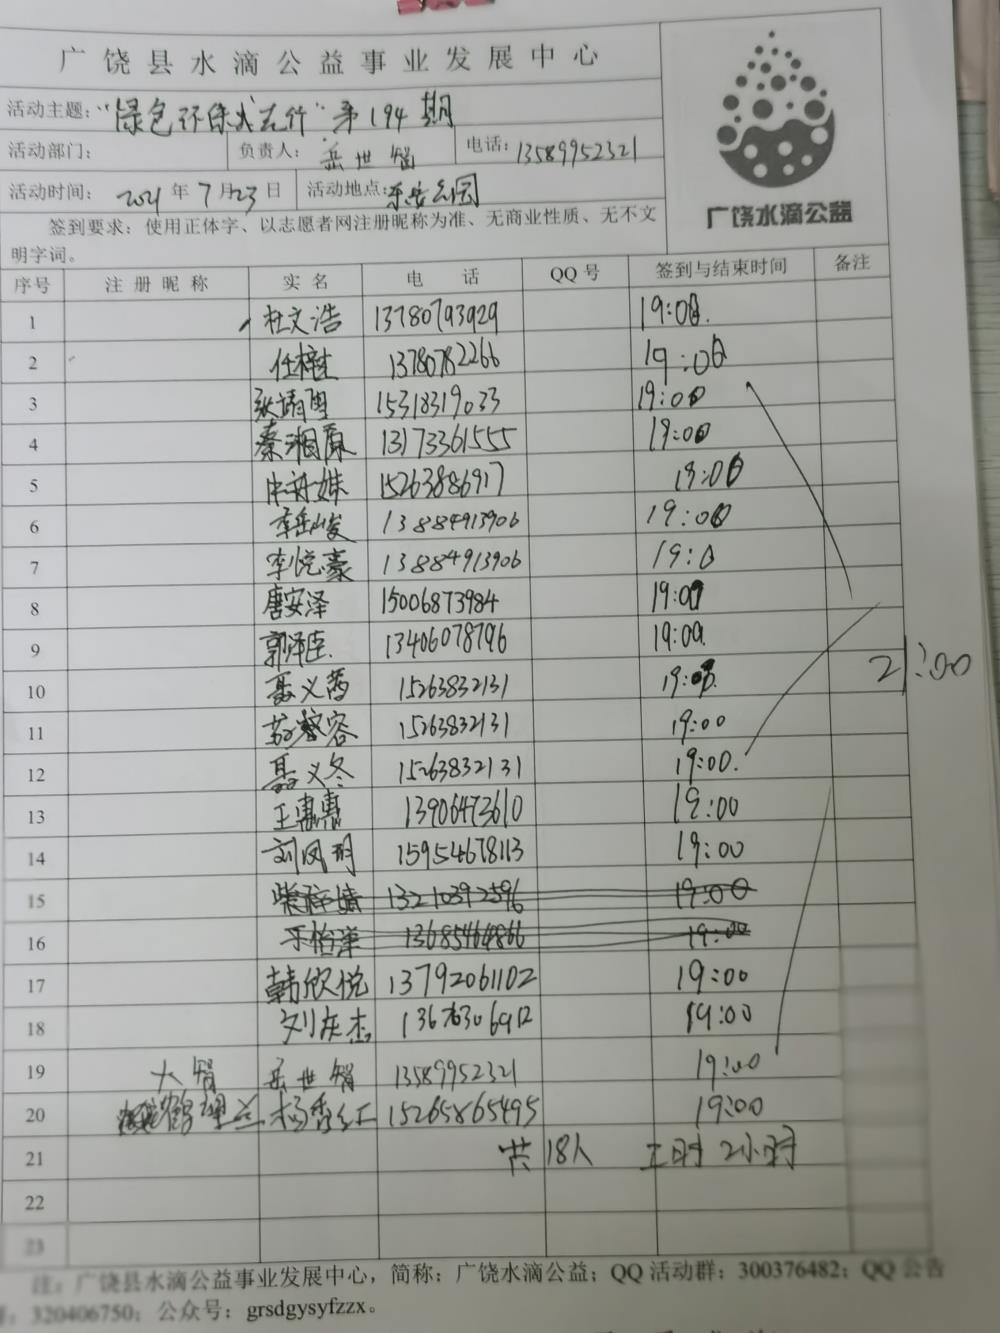 广饶县水滴公益事业发展中心
活动主题:“绿色环保 志在行”第194期
活动部门: 负责人:岳世智 电话:13589952321
活动时间: 2021年7月23日 活动地点:乐安公园
签到要求:使用正体字、以志愿者网注册昵称为准、无商业性质、无不文
明字词。
广饶水滴公益
序号 注册昵称 实名 电话 QQ号 签到与结束时间 备注
1 杜文浩 13780793929 19:00.
2 13780782266 19:00
3 15318319033 19:00
4 秦湘原 13173361555 19:00
5 15263886917 19:00
6 李岳峻 13884913906 19:00
7 李悦豪 13884913906 19:0
8 唐安泽 15006873984 19:0
9 郭泽臣 13406078796 19:00.
10 聂义茜 15263832131 19:0
11 容 15263832131 19:00
12 聂义冬 15263832131 19:00.
21:00
13 王惠惠 13906473610 19:00
14 刘凤玥 15954678113 19:00
15 柴梓婧 13210392596 19:00
16 怡 13685464866 19:00
17 韩欣悦 13792061102 19:00
18 刘庆杰 13676306912 19:00
19 大智 岳世智 13589952321 19:00
20 鹤望兰 杨香红 15265865495 19:00
21 共18人 工时 2小时
22
23
注:广饶县水滴公益事业发展中心,简称:广饶水滴公益;QQ活动群:300376482;QQ公告
群:320406750;公众号:grsdgysyfzzx。